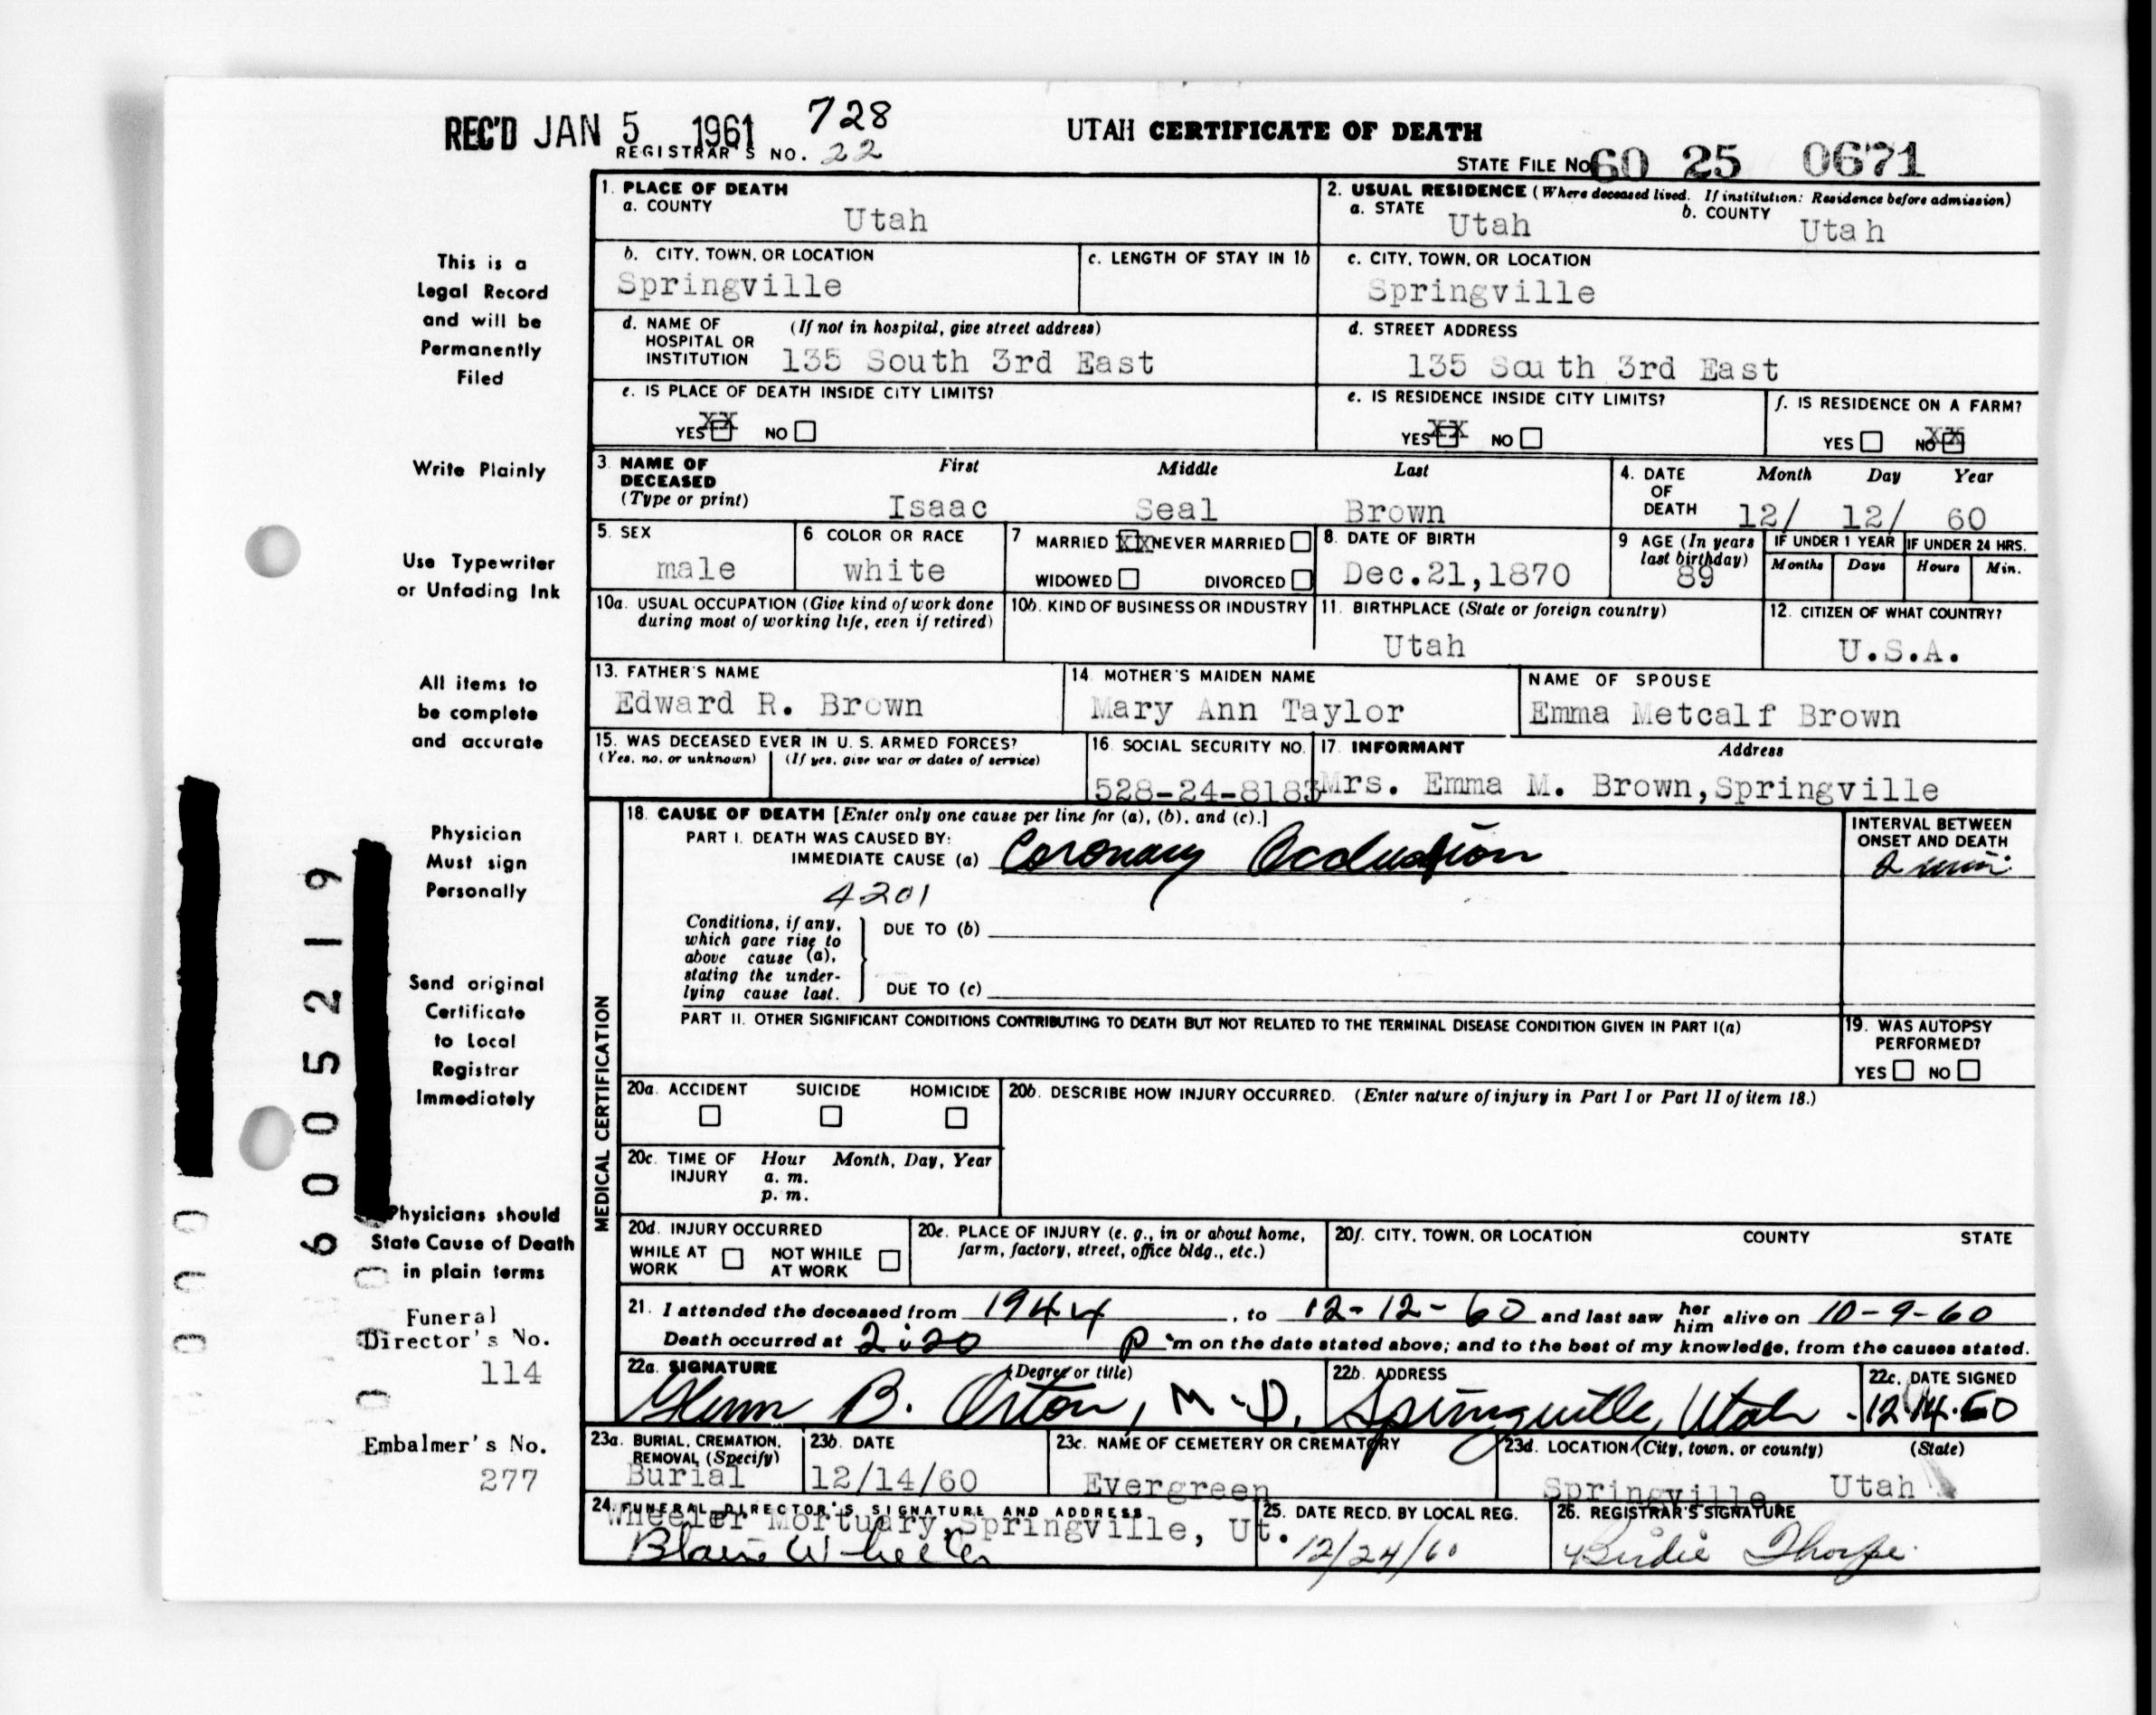 REC'D JAN 5 1961 728
REGISTRAR'S NO. 22
UTAH CERTIFICATE OF DEATH
STATE FILE No 60 25 0671
This is a
Legal Record
and will be
Permanently
Filed
Write Plainly
Use Typewriter
or Unfading Ink
All items to
be complete
and accurate
Physician
Must sign
Personally
Send original
Certificate
to Local
Registrar
Immediately
Physicians should
State Cause of Death
in plain terms
Funeral
Director's No.
114
Embalmer's No.
277
6005219
1. PLACE OF DEATH
a. COUNTY
Utah
2. USUAL RESIDENCE (Where deceased lived. If institution: Residence before admission)
a. STATE Utah b. COUNTY Utah
b. CITY, TOWN, OR LOCATION
Springville
c. LENGTH OF STAY IN 1b
c. CITY, TOWN, OR LOCATION
Springville
d. NAME OF (If not in hospital, give street address)
HOSPITAL OR
INSTITUTION 135 South 3rd East
d. STREET ADDRESS
135 South 3rd East
e. IS PLACE OF DEATH INSIDE CITY LIMITS?
YES XX NO
e. IS RESIDENCE INSIDE CITY LIMITS?
YES XX NO
f. IS RESIDENCE ON A FARM?
YES NO XX
3. NAME OF First Middle Last
DECEASED
(Type or print) Isaac Seal Brown
4. DATE Month Day Year
OF
DEATH 12/ 12/ 60
5. SEX
male
6 COLOR OR RACE
white
7 MARRIED XX NEVER MARRIED
WIDOWED DIVORCED
8. DATE OF BIRTH
Dec.21,1870
9 AGE (In years
last birthday)
89
IF UNDER 1 YEAR
Months Days
IF UNDER 24 HRS.
Hours Min.
10a. USUAL OCCUPATION (Give kind of work done
during most of working life, even if retired)
10b. KIND OF BUSINESS OR INDUSTRY
11. BIRTHPLACE (State or foreign country)
Utah
12. CITIZEN OF WHAT COUNTRY?
U.S.A.
13. FATHER'S NAME
Edward R. Brown
14. MOTHER'S MAIDEN NAME
Mary Ann Taylor
NAME OF SPOUSE
Emma Metcalf Brown
15. WAS DECEASED EVER IN U. S. ARMED FORCES?
(Yes, no, or unknown) (If yes, give war or dates of service)
16. SOCIAL SECURITY NO.
528-24-8183
17. INFORMANT Address
Mrs. Emma M. Brown, Springville
MEDICAL CERTIFICATION
18. CAUSE OF DEATH [Enter only one cause per line for (a), (b), and (c).]
PART I. DEATH WAS CAUSED BY:
IMMEDIATE CAUSE (a) Coronary Occlusion
4201
INTERVAL BETWEEN
ONSET AND DEATH
2 min.
Conditions, if any,
which gave rise to
above cause (a),
stating the under-
lying cause last.
DUE TO (b)
DUE TO (c)
PART II. OTHER SIGNIFICANT CONDITIONS CONTRIBUTING TO DEATH BUT NOT RELATED TO THE TERMINAL DISEASE CONDITION GIVEN IN PART I(a)
19. WAS AUTOPSY
PERFORMED?
YES NO
20a. ACCIDENT SUICIDE HOMICIDE
20b. DESCRIBE HOW INJURY OCCURRED. (Enter nature of injury in Part I or Part II of item 18.)
20c. TIME OF Hour Month, Day, Year
INJURY a. m.
p. m.
20d. INJURY OCCURRED
WHILE AT NOT WHILE
WORK AT WORK
20e. PLACE OF INJURY (e. g., in or about home,
farm, factory, street, office bldg., etc.)
20f. CITY, TOWN, OR LOCATION COUNTY STATE
21. I attended the deceased from 1944, to 12-12-60 and last saw her him alive on 10-9-60
Death occurred at 2:20 P m on the date stated above; and to the best of my knowledge, from the causes stated.
22a. SIGNATURE (Degree or title)
Glenn B. Orton, M.D.
22b. ADDRESS
Springville, Utah
22c. DATE SIGNED
12-14-60
23a. BURIAL, CREMATION,
REMOVAL (Specify)
Burial
23b. DATE
12/14/60
23c. NAME OF CEMETERY OR CREMATORY
Evergreen
23d. LOCATION (City, town, or county) (State)
Springville Utah
24. FUNERAL DIRECTOR'S SIGNATURE AND ADDRESS
Wheeler Mortuary, Springville, Ut.
Blair Wheeler
25. DATE RECD. BY LOCAL REG.
12/24/60
26. REGISTRAR'S SIGNATURE
Birdie Thorpe